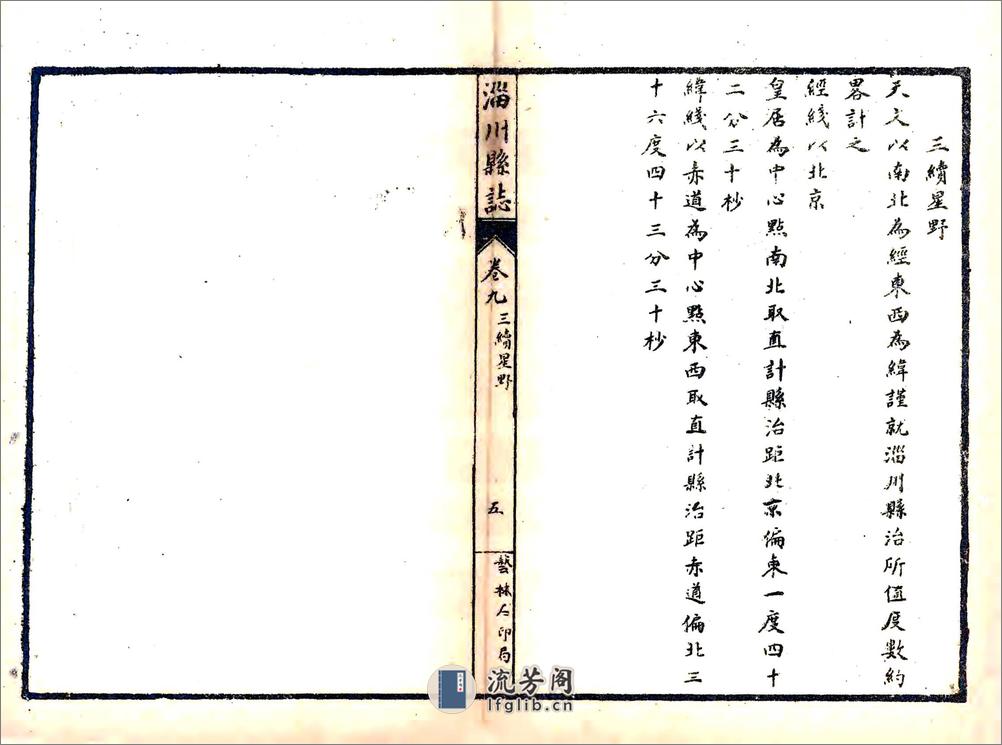 三續星野
天文以南北為經東西為緯謹就淄川縣治所值度數約
畧計之
經綫以北京
皇居為中心點南北取直計縣治距北京偏東一度四十
二分三十杪
緯綫以赤道為中心點東西取直計縣治距赤道偏北三
十六度四十三分三十杪
淄川縣誌
卷九
三續星野
五
藝林石印局
流芳阁
lfglib.cn